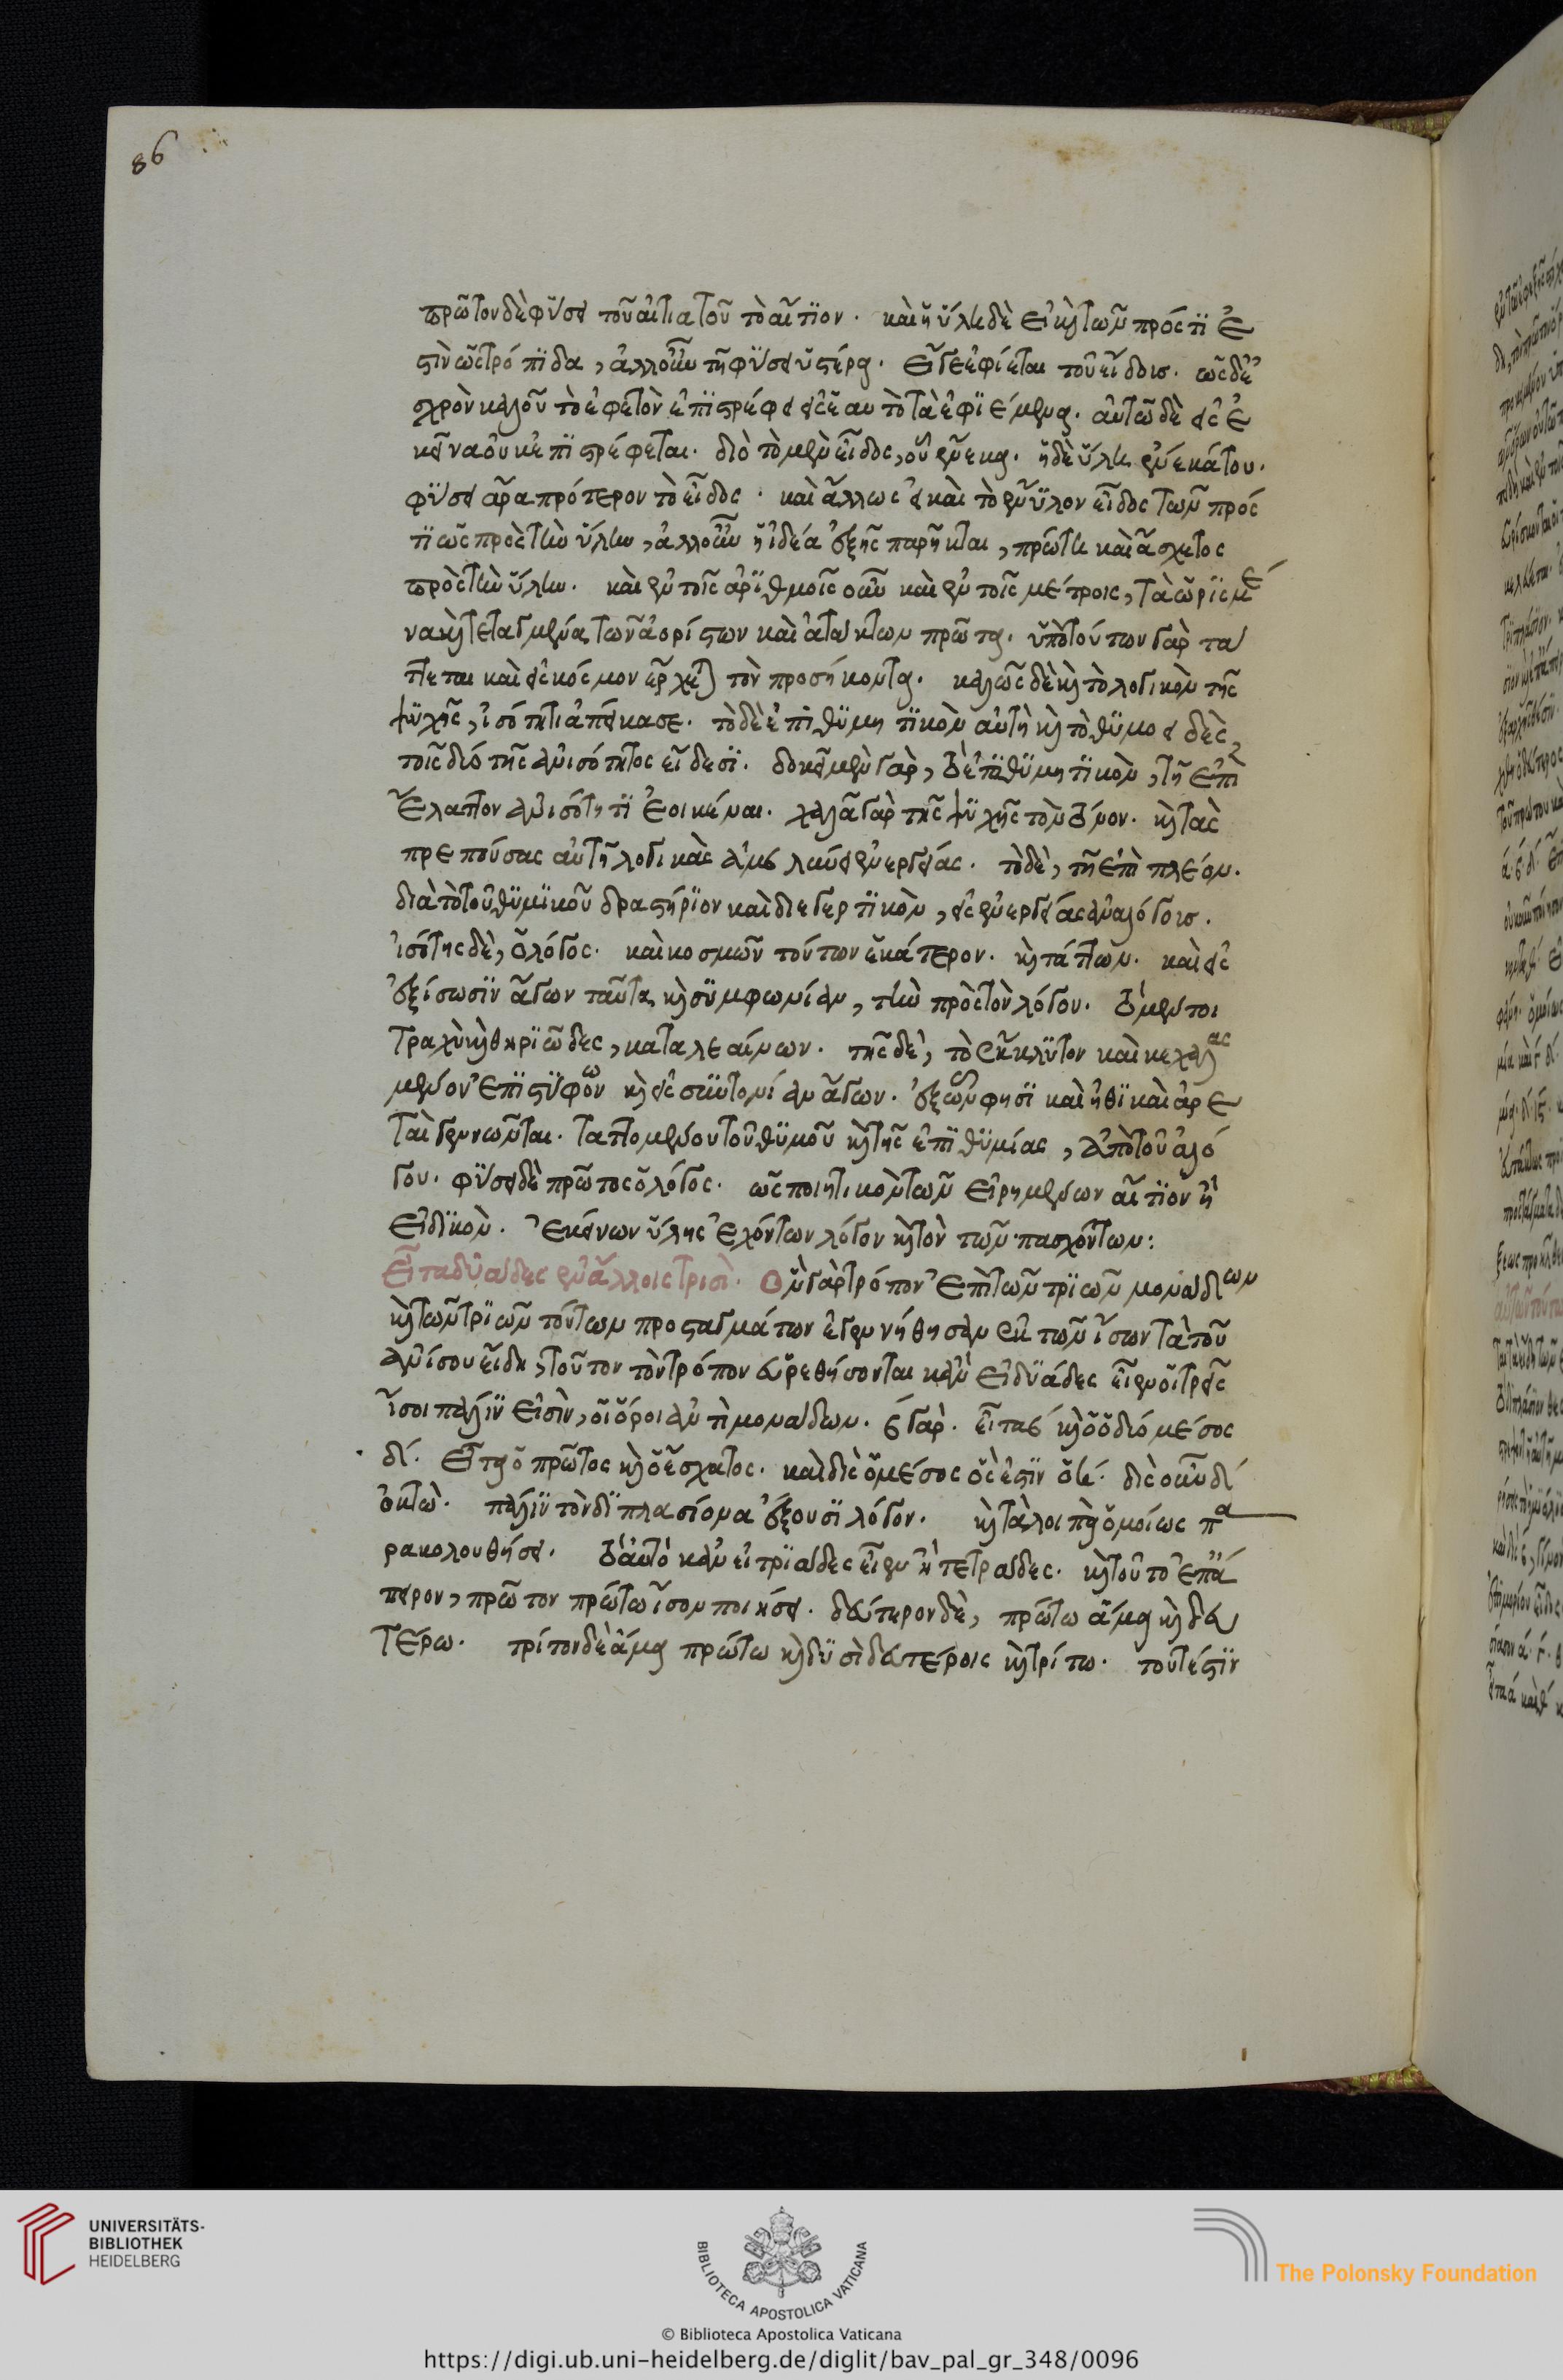 86
πρῶτον δὲ φύσει τοῦ αἰτιατοῦ τὸ αἴτιον. καὶ ἡ ὕλη δὲ εἰ καὶ τῶν πρός τι ἐ
στὶν ὡς πρὸς, ἀλλ' οὖν τῇ φύσει ὑστέρα. εἴγε ἐφίεται τοῦ εἴδους. ὡς δὲ
σχρὸν καλοῦ τὸ ἐφετὸν ἐπιστρέφει εἰς ἑαυτὸ τὰ ἐφιέμενα. αὐτῷ δὲ εἰς ἐ
κεῖνα οὐκ ἐπιστρέφεται. διὸ τὸ μὲν εἶδος, οὗ ἕνεκα. ἡ δὲ ὕλη ἑνέκα του.
φύσει ἄρα πρότερον τὸ εἶδος. καὶ ἄλλως εἰ καὶ τὸ ἔνυλον εἶδος τῶν πρός
τι ὡς πρὸς τὴν ὕλην, ἀλλ' οὖν ἡ ἰδέα ἐξ ἧς παρῆκται, πρώτη καὶ ἄσχετος
πρὸς τὴν ὕλην. καὶ ἐν τοῖς ἀριθμοῖς οὖν καὶ ἐν τοῖς μέτροις, τὰ ὡρισμέ
να καὶ τεταγμένα τῶν ἀορίστων καὶ ἀτάκτων πρῶτα. ὑπὸ τούτων γὰρ τά
ττεται καὶ εἰς κόσμον ἔρχεται τὸν προσήκοντα. καλῶς δὲ καὶ τὸ λογικὸν τῆς
ψυχῆς, ἰσότητι ἀπείκασε. τὸ δὲ ἐπιθυμητικὸν αὐτῆ καὶ τὸ θυμοειδὲς,
τοῖς δυσὶ τῆς ἀνισότητος εἴδεσι. δοκεῖ μὲν γὰρ, τὸ ἐπιθυμητικὸν, τῇ ἐπὶ
ἔλαττον ἀνισότητι ἐοικέναι. χαλᾶ γὰρ τῆς ψυχῆς τὸν τόνον. καὶ τὰς
πρεπούσας αὐτῇ λογικὰς ἀμβλύνει ἐνεργείας. τὸ δὲ, τῇ ἐπὶ πλέον.
διὰ τὸ τοῦ θυμικοῦ δραστήριον καὶ διεγερτικὸν, εἰς ἐνεργείας ἀναλόγους.
ἰσότης δὲ, ὁ λόγος. καὶ κοσμῶν τούτων ἑκάτερον. καὶ τάττων. καὶ εἰς
ἐξίσωσιν ἄγων ταῦτα καὶ συμφωνίαν, τὴν πρὸς τὸν λόγον. τὸ μέν τοι
τραχὺ καὶ θηριῶδες, καταλεαίνων. τῆς δὲ, τὸ ἔκκλυτον καὶ κεχαλας
μένον ἐπιστύφων καὶ εἰς συντονίαν ἄγων. ἐξ ὧν φησι καὶ ἠθικαὶ ἀρε
ταὶ γεννῶνται. ταττομένου τοῦ θυμοῦ καὶ τῆς ἐπιθυμίας, ὑπὸ τοῦ λό
γου. φύσει δὲ πρῶτος ὁ λόγος. ὡς ποιητικὸν τῶν εἰρημένων αἴτιον ἢ
εἰδικὸν. ἐκείνων ὕλης ἐχόντων λόγον καὶ τὸν τῶν πασχόντων:
Εἶτα δυάδες ἐν ἄλλοις τρισὶ. Ὃν γὰρ τρόπον ἐπὶ τῶν τριῶν μονάδων
καὶ τῶν τριῶν τούτων προσταγμάτων ἐγεννήθησαν ἐκ τῶν ἴσων τὰ τοῦ
ἀνίσου εἴδη, τοῦτον τὸν τρόπον εὑρεθήσονται κἂν εἰ δυάδες εἶεν οἱ τρεῖς
ἴσοι πάλιν εἰσὶν, οἱ ὅροι ἀντὶ μονάδων.
δ. εἶτα ὁ πρῶτος καὶ ὁ ἔσχατος. καὶ δὶς ὁ μέσος ὅς ἐστιν ὁ δ. δὶς οὖν δ
ὀκτὼ. πάλιν τὸν διπλασίονα ἕξουσι λόγον. καὶ τὰ λοιπὰ ὁμοίως πα
ρακολουθήσει. τὸ αὐτὸ κἂν εἰ τριάδες εἶεν ἢ τετράδες. καὶ τοῦτο ἐπ' ἄ
πειρον, πρῶτον πρώτῳ ἴσον ποιήσει. δεύτερον δὲ, πρώτῳ ἅμα καὶ δευ
τέρῳ. τρίτον δὲ ἅμα πρώτῳ καὶ δυσὶ δευτέροις καὶ τρίτῳ. τουτέστιν
UNIVERSITÄTS-
BIBLIOTHEK
HEIDELBERG
BIBLIOTECA APOSTOLICA VATICANA
The Polonsky Foundation
© Biblioteca Apostolica Vaticana
https://digi.ub.uni-heidelberg.de/diglit/bav_pal_gr_348/0096